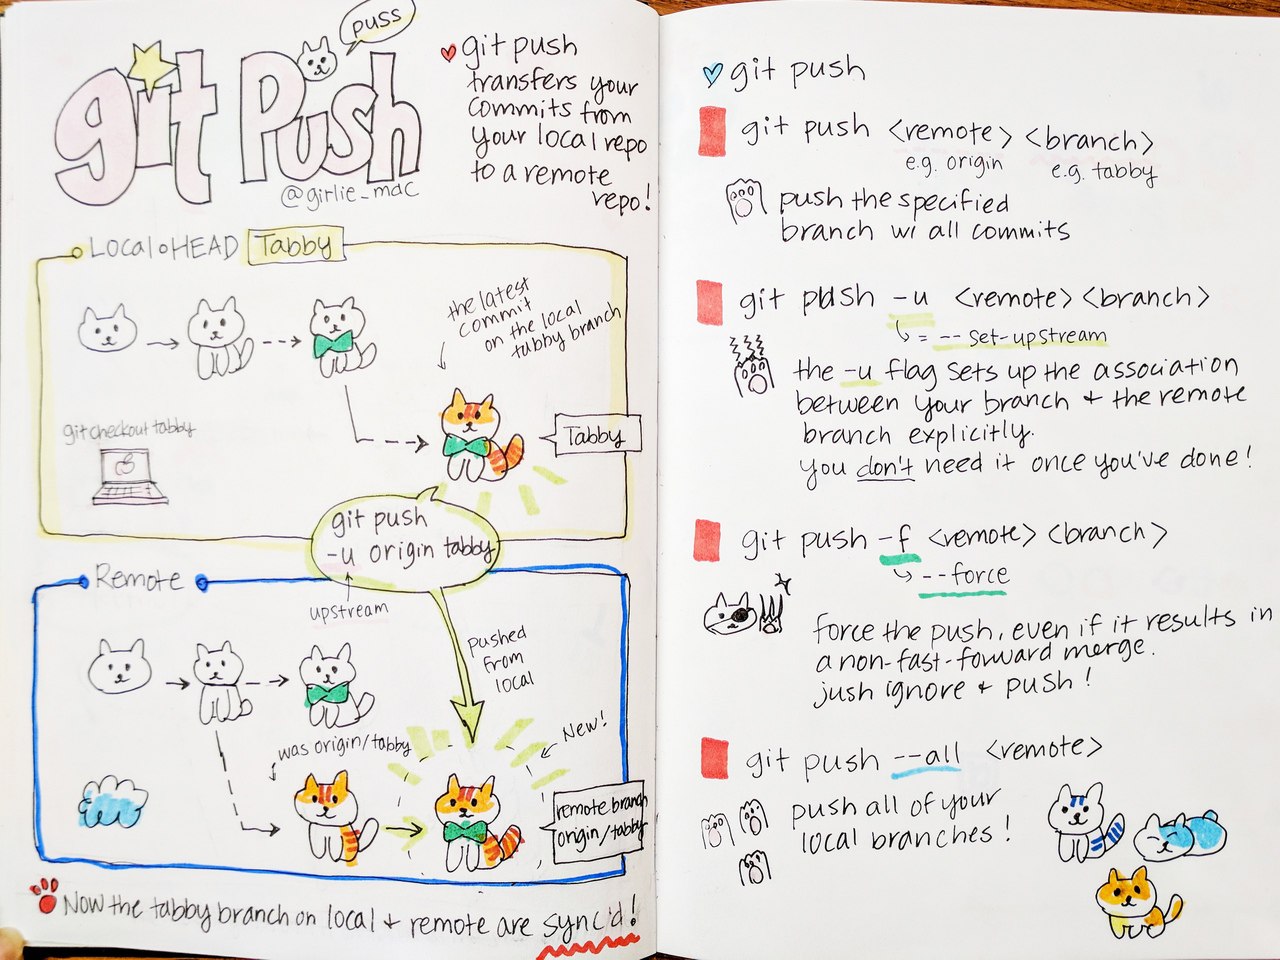 git Push
puss
@girlie_mac
git push
transfers your
commits from
your local repo
to a remote
repo!
Local HEAD Tabby
the latest
commit
on the local
tabby branch
git checkout tabby
Tabby
git push
-u origin tabby
upstream
Remote
pushed
from
local
New!
was origin/tabby
remote branch
origin/tabby
Now the tabby branch on local & remote are sync'd!
git push
git push <remote> <branch>
e.g. origin e.g. tabby
push the specified
branch w/ all commits
git push -u <remote> <branch>
= --set-upstream
the -u flag sets up the association
between your branch & the remote
branch explicitly.
you don't need it once you've done!
git push -f <remote> <branch>
--force
force the push, even if it results in
a non-fast-forward merge.
jush ignore & push!
git push --all <remote>
push all of your
local branches!